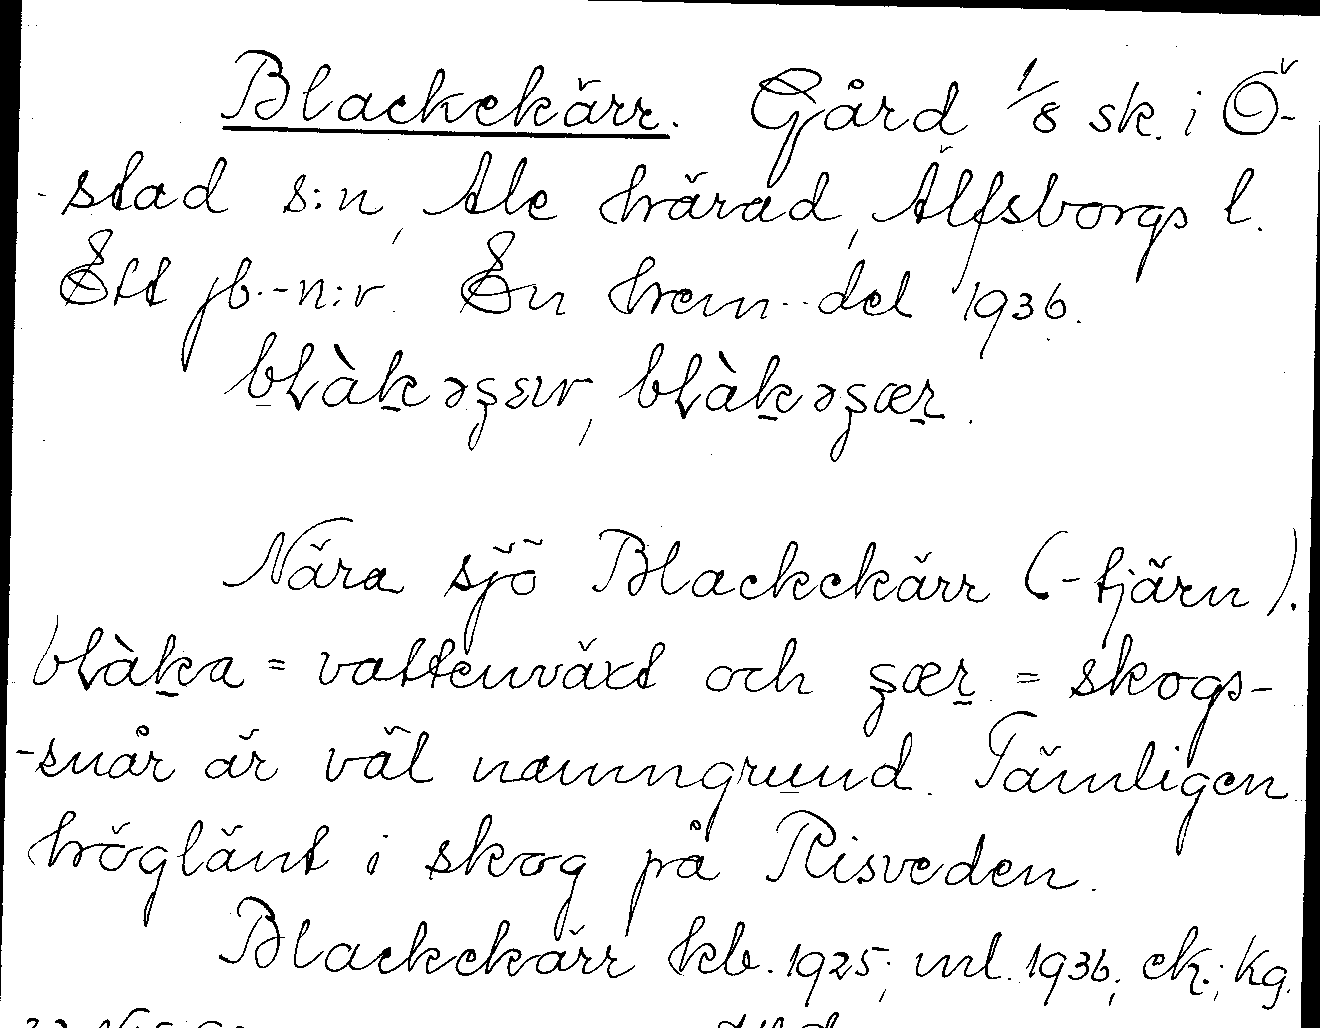 Blackekärr. Gård 1/8 sk. i Ö-
-stad s:n, Ale härad, Älfsborgs l.
Ett jb.-n:r. En hem.-del 1936.
blàkəʂær, blàkəʂær.
Nära sjö Blackekärr (-tjärn).
blàka = vattenväxt och ʂær = skogs-
-snår är väl namngrund. Tämligen
höglänt i skog på Risveden.
Blackekärr kb. 1925; ml. 1936; ek.; kg.